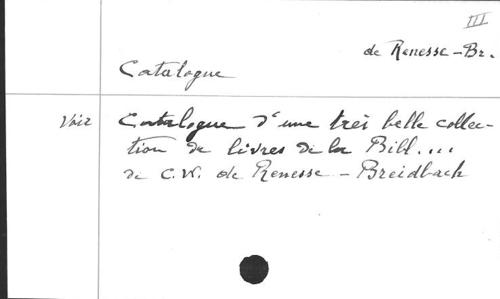 III
de Renesse-Br.
Catalogue
Voir Catalogue d'une très belle collec-
tion de livres de la Bibl. ...
de C.W. de Renesse - Breidbach